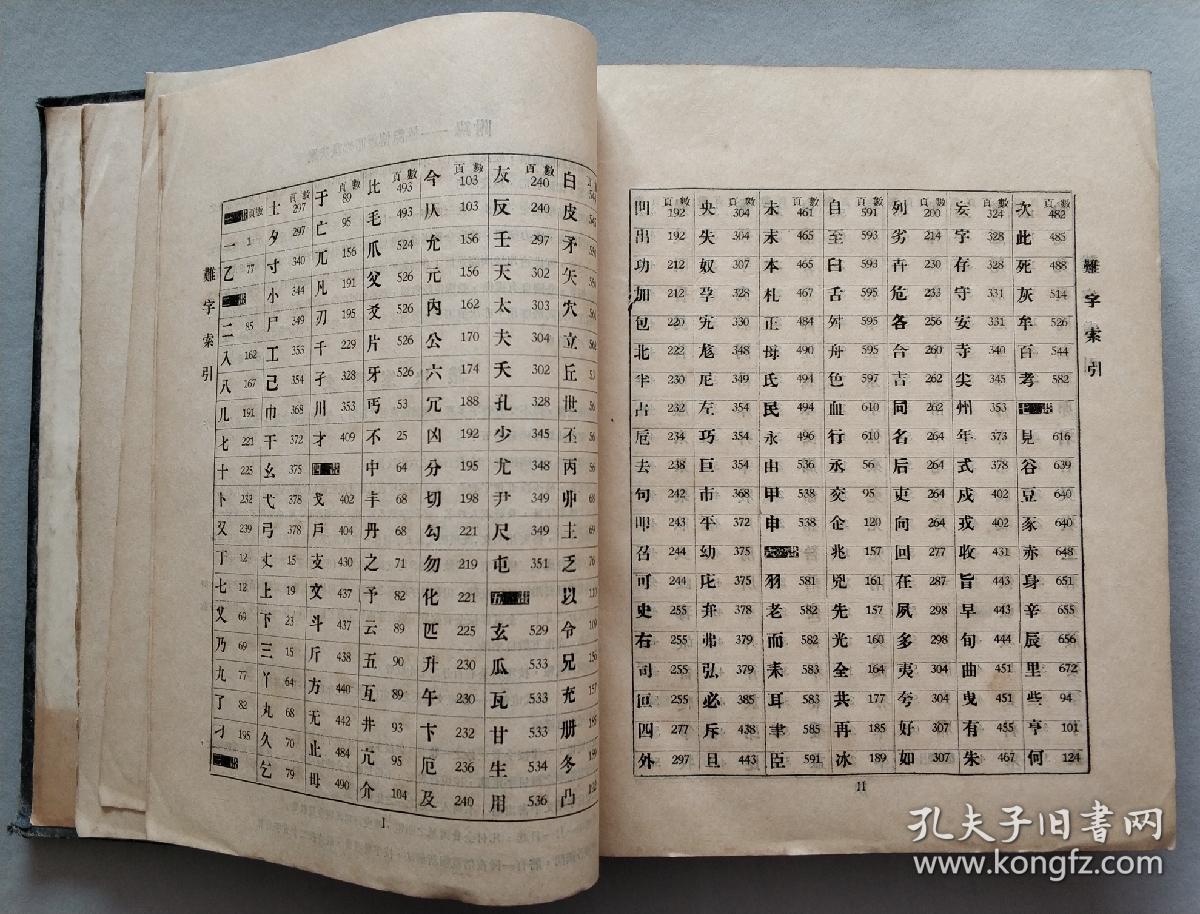 難字索引
一畫 頁數 士 頁數 297 于 頁數 89 比 頁數 493 今 頁數 103 友 頁數 240 白
一 1 夕 297 亡 95 毛 493 从 103 反 240 皮
乙 77 寸 340 兀 156 爪 524 允 156 壬 297 矛
二畫 小 344 凡 191 父 526 元 156 天 302 矢
二 85 尸 349 刃 195 爻 526 內 162 太 303 穴
入 162 工 353 千 229 片 526 公 170 夫 304 立
八 167 己 354 孑 328 牙 526 六 174 夭 302 丘
儿 191 巾 368 川 353 丐 53 冗 188 孔 328 世 56
匕 221 干 372 才 409 不 25 凶 192 少 345 丕 56
十 225 幺 375 四畫 中 64 分 195 尤 348 丙 56
卜 232 弋 378 戈 402 丰 68 切 198 尹 349 卯 68
又 239 弓 378 戶 404 丹 68 勾 221 尺 349 主 69
丁 12 丈 15 支 430 之 71 勿 219 屯 351 乏 76
七 12 上 19 文 437 予 82 化 221 五畫 以
乂 69 下 23 斗 437 云 89 匹 225 玄 529 令 109
乃 69 三 15 斤 438 五 90 升 230 瓜 533 兄 156
九 77 丫 64 方 440 互 89 午 230 瓦 533 充 157
了 82 丸 68 无 442 井 93 卞 232 甘 533 册
刁 195 久 70 止 484 亢 95 厄 236 生 534 冬
三畫 乞 79 毋 490 介 104 及 240 用 536 凸
I
凹 頁數 192 央 頁數 304 未 頁數 461 自 頁數 591 列 頁數 200 妄 頁數 324 次 頁數 482
出 192 失 304 末 465 至 593 劣 214 字 328 此 485
功 212 奴 307 本 465 臼 593 卉 230 存 328 死 488
加 212 孕 328 札 467 舌 595 危 233 守 331 灰 514
包 220 宂 330 正 484 舛 595 各 256 安 331 牟 526
北 222 尥 348 母 490 舟 595 合 260 寺 340 百 544
半 230 尼 349 氏 494 色 597 吉 262 尖 345 考 582
占 232 左 354 民 494 血 610 同 262 州 353 七畫
卮 234 巧 354 永 496 行 610 名 264 年 373 見 616
去 238 巨 354 由 536 丞 56 后 264 式 378 谷 639
句 242 市 368 甲 538 交 95 吏 264 戍 402 豆 640
叩 243 平 372 申 538 企 120 向 264 戎 402 豕 640
召 244 幼 375 六畫 兆 157 回 277 收 431 赤 648
可 244 庀 375 羽 581 兇 161 在 287 旨 443 身 651
史 255 弁 378 老 582 先 157 夙 298 早 443 辛 655
右 255 弗 379 而 582 光 160 多 298 旬 444 辰 656
司 255 弘 379 耒 583 全 164 夷 304 曲 451 里 672
叵 255 必 385 耳 583 共 177 夸 304 曳 451 些 94
四 277 斥 438 聿 585 再 185 好 307 有 455 亨 101
外 297 旦 443 臣 591 冰 189 如 307 朱 467 何 124
難字索引
II
孔夫子旧書网
www.kongfz.com